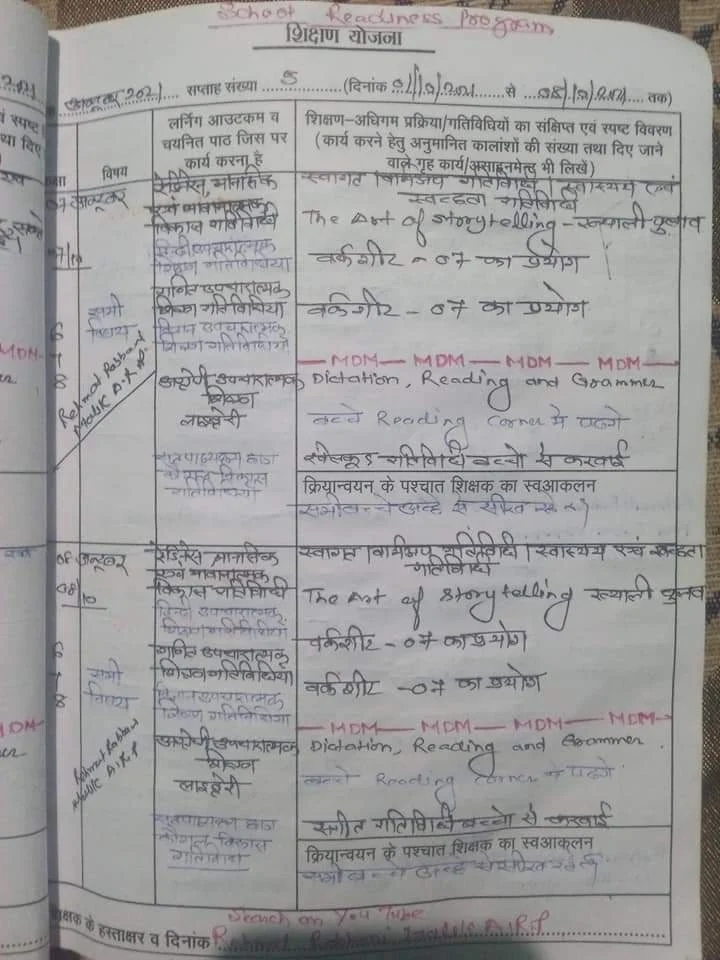 School Readiness Program
शिक्षण योजना
अक्टूबर 2021 सप्ताह संख्या 5 (दिनांक 01/10/2021 से 08/10/2021 तक)
विषय
लर्निंग आउटकम व चयनित पाठ जिस पर कार्य करना है
शिक्षण-अधिगम प्रक्रिया/गतिविधियों का संक्षिप्त एवं स्पष्ट विवरण
(कार्य करने हेतु अनुमानित कालांशों की संख्या तथा दिए जाने
वाले गृह कार्य/असाइनमेन्ट भी लिखें)
07 अक्टूबर
07/10
सभी
विषय
6
7
8
Rehmat Rabbani
रेडिनेस, मानसिक
एवं भावानात्मक
विकास गतिविधी
हिन्दी उपचारात्मक
शिक्षण गतिविधिया
गणित उपचारात्मक
शिक्षण गतिविधिया
विज्ञान उपचारात्मक
शिक्षण गतिविधियाँ
अंग्रेजी उपचारात्मक
शिक्षण
लाइब्रेरी
गतिविधियाँ
स्वागत | वार्मअप गतिविधि | स्वास्थ्य एवं
स्वच्छता गतिविधि
The Art of Storytelling - ख्याली पुलाव
वर्कशीट - 07 का प्रयोग
वर्कशीट - 07 का प्रयोग
MDM MDM MDM MDM
Dictation, Reading and Grammer
बच्चे Reading Corner मे पढगे
खेलकूद गतिविधी बच्चो से करवाई
क्रियान्वयन के पश्चात शिक्षक का स्वआकलन
08 अक्टूबर
08/10
6
7
8
सभी
विषय
Rehmat Rabbani
रेडिनेस मानसिक
एवं भावानात्मक
विकास गतिविधी
हिन्दी उपचारात्मक
शिक्षण गतिविधिया
गणित उपचारात्मक
शिक्षण गतिविधिया
विज्ञान उपचारात्मक
शिक्षण गतिविधिया
अंग्रेजी उपचारात्मक
शिक्षण
लाइब्रेरी
स्वागत | वार्मअप गतिविधी | स्वास्थ्य एवं स्वच्छता
गतिविधि
The Art of Storytelling ख्याली पुलाव
वर्कशीट - 07 का प्रयोग
वर्कशीट - 07 का प्रयोग
MDM MDM MDM MDM
Dictation, Reading and Grammer
बच्चे Reading Corner मे पढगे
संगीत गतिविधी बच्चो से करवाई
क्रियान्वयन के पश्चात शिक्षक का स्वआकलन
Search on You Tube
शिक्षक के हस्ताक्षर व दिनांक Rehmat Rabbani A.R.P